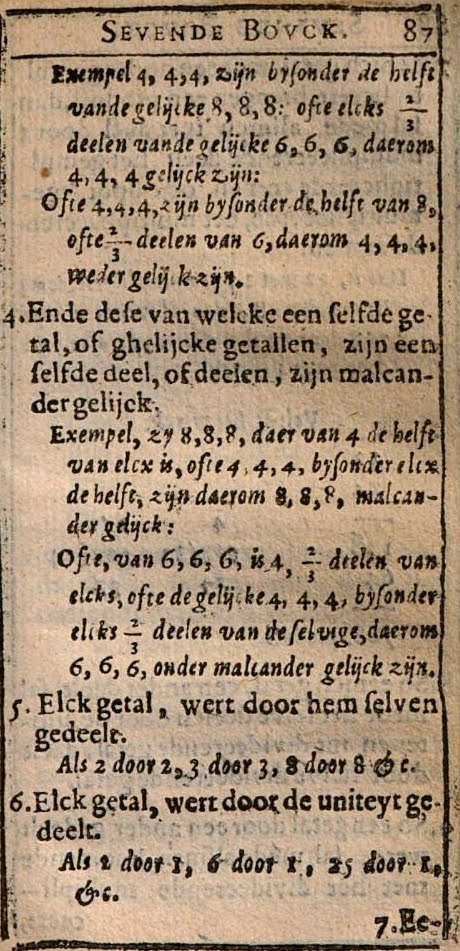 SEVENDE BOVCK. 87
Exempel 4, 4, 4, zijn bysonder de helft
vande gelijcke 8, 8, 8: ofte elcks 2/3
deelen vande gelijcke 6, 6, 6, daerom
4, 4, 4 gelijck zijn:
Ofte 4, 4, 4, zijn bysonder de helft van 8,
ofte 2/3 deelen van 6, daerom 4, 4, 4,
weder gelijck zijn.
4. Ende dese van welcke een selfde ge-
tal, of ghelijcke getallen, zijn een
selfde deel, of deelen, zijn malcan-
der gelijck.
Exempel, zy 8, 8, 8, daer van 4 de helft
van elcx is, ofte 4, 4, 4, bysonder elcx
de helft, zijn daerom 8, 8, 8, malcan-
der gelijck:
Ofte, van 6, 6, 6, is 4, 2/3 deelen van
elcks, ofte de gelijcke 4, 4, 4, bysonder
elcks 2/3 deelen van de selvige, daerom
6, 6, 6, onder malcander gelijck zijn.
5. Elck getal, wert door hem selven
gedeelt.
Als 2 door 2, 3 door 3, 8 door 8 &c.
6. Elck getal, wert door de uniteyt ge-
deelt.
Als 2 door 1, 6 door 1, 25 door 1,
&c.
7. Ee-